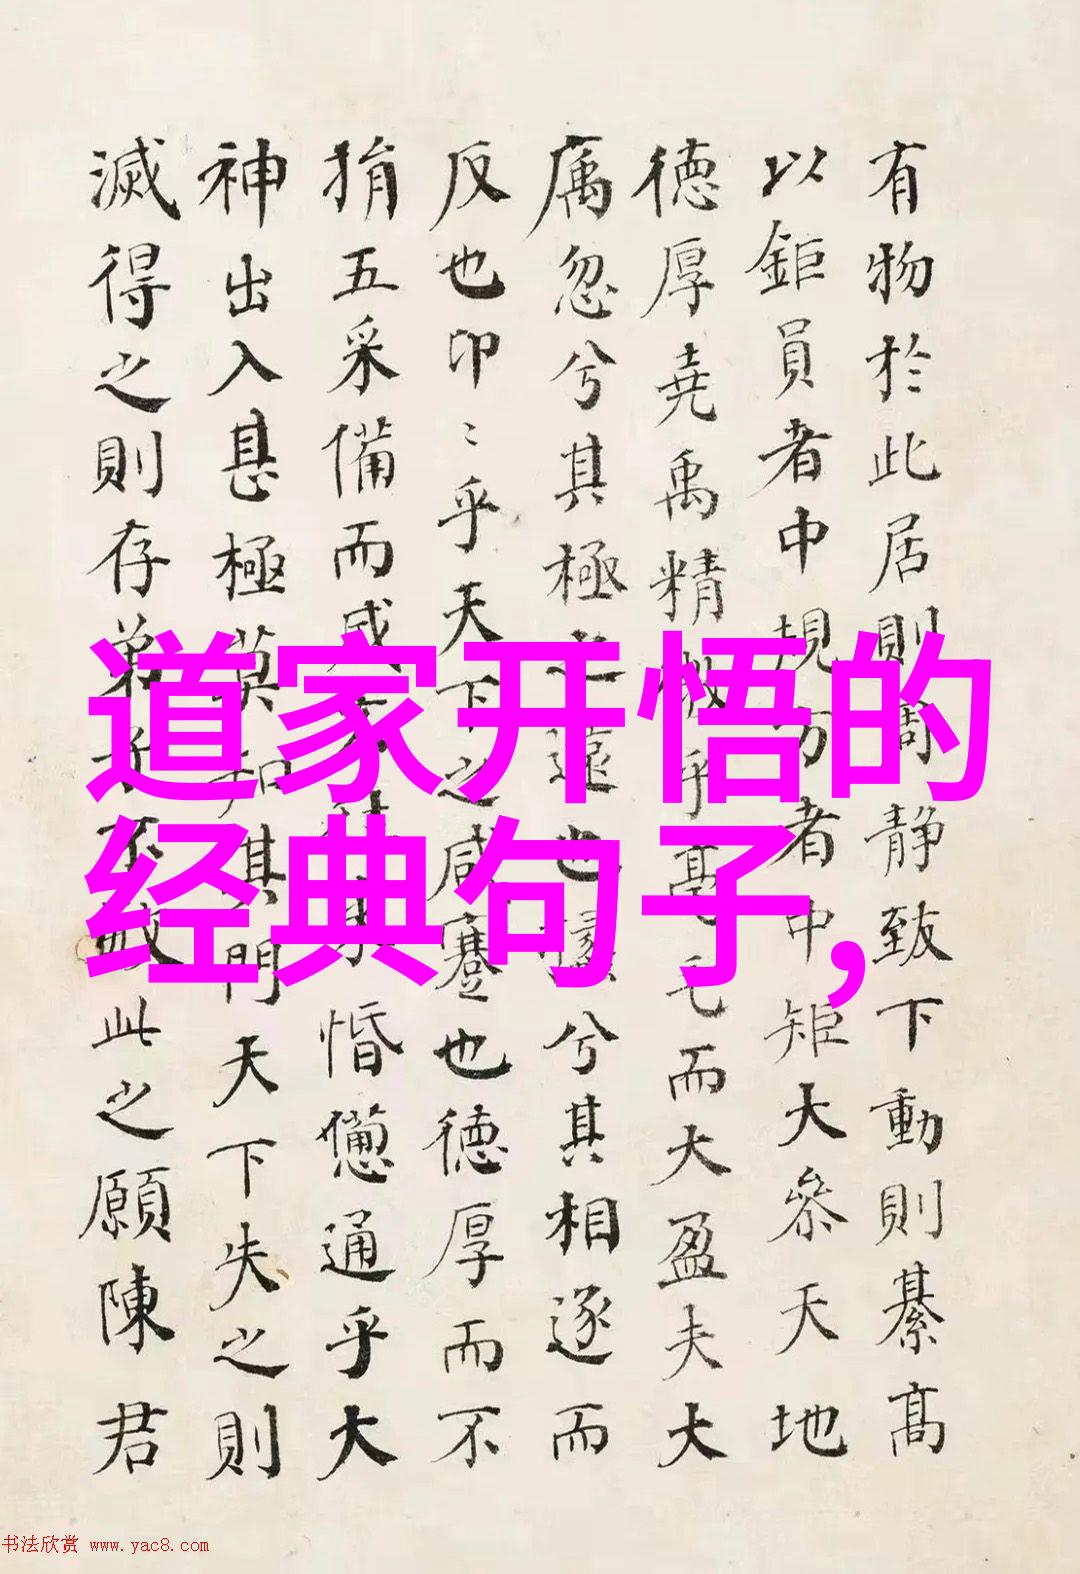 有物於此居則周静致下動則綦髙
以鉅員者中規方者中矩大叅天地
德厚堯禹精微乎毫毛而大盈夫大
厲忽兮其極之遠也攭兮其相逐而
反也卬〻乎天下之咸蹇也德厚而不
捐五采備而成文惛憊通乎大
神出入甚極莫知其門天下失之則
滅得之則存弟子不敏此之願陳君
道家开悟的
经典句子,
书法欣赏 www.yac8.com